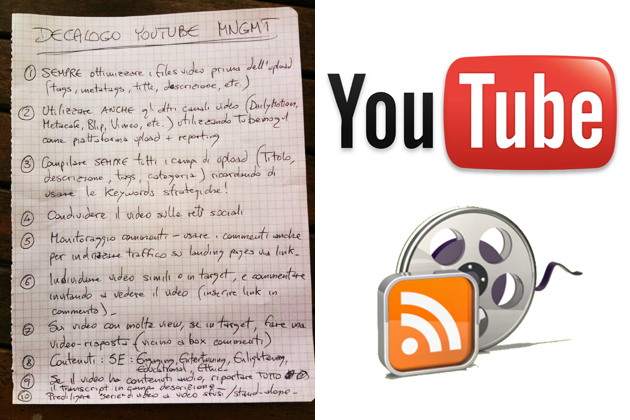 DECALOGO YOUTUBE MNGMT
① SEMPRE ottimizzare i files video prima dell'upload
(tags, metatags, title, descrizione, etc.)
② Utilizzare ANCHE gli altri canali video (DailyMotion,
Metacafe, Blip, Vimeo, etc.) utilizzando Tubemogul
come piattaforma upload + reporting
③ Compilare SEMPRE tutti i campi di upload (Titolo,
descrizione, tags, categoria) ricordando di
usare le Keywords strategiche!
④ Condividere il video sulle reti sociali
⑤ Monitoraggio commenti - usare i commenti anche
per indirizzare traffico su landing pages via link_
⑥ Individuare video simili o in target, e commentare
invitando a vedere il video (inserire link in
commento)_
⑦ Sui video con molte view, se in target, fare una
video-risposta (vicino a box commenti)
⑧ Contenuti: SE: Engaging, Entertaining, Enlightening,
Educational, Ethic_
⑨ Se il video ha contenuti audio, riportare TUTTO
il transcript in campo descrizione_
⑩ Prediligere "serie" di video a video /stand-alone_
YouTube